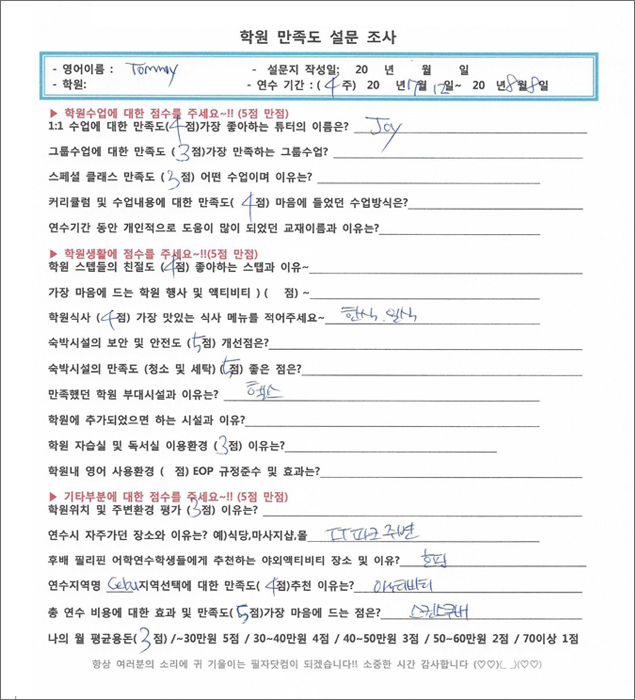 학원 만족도 설문 조사
- 영어이름 : Tommy - 설문지 작성일: 20 년 월 일
- 학원: - 연수 기간 : ( 4 주) 20 년 7월 12일~ 20 년 8월 8일
▶ 학원수업에 대한 점수를 주세요~!! (5점 만점)
1:1 수업에 대한 만족도( 4점)가장 좋아하는 튜터의 이름은? Joy
그룹수업에 대한 만족도 ( 3점)가장 만족하는 그룹수업?
스페셜 클래스 만족도 ( 3점) 어떤 수업이며 이유는?
커리큘럼 및 수업내용에 대한 만족도( 4점) 마음에 들었던 수업방식은?
연수기간 동안 개인적으로 도움이 많이 되었던 교재이름과 이유는?
▶ 학원생활에 점수를 주세요~!!(5점 만점)
학원 스텝들의 친절도 ( 4점) 좋아하는 스탭과 이유~
가장 마음에 드는 학원 행사 및 액티비티 ) ( 점) ~
학원식사 ( 4점) 가장 맛있는 식사 메뉴를 적어주세요~ 한식, 일식
숙박시설의 보안 및 안전도 ( 5점) 개선점은?
숙박시설의 만족도 (청소 및 세탁) ( 5점) 좋은 점은?
만족했던 학원 부대시설과 이유는? 헬스
학원에 추가되었으면 하는 시설과 이유?
학원 자습실 및 독서실 이용환경 ( 3점) 이유는?
학원내 영어 사용환경 ( 점) EOP 규정준수 및 효과는?
▶ 기타부분에 대한 점수를 주세요~!! (5점 만점)
학원위치 및 주변환경 평가 ( 3점) 이유는?
연수시 자주가던 장소와 이유는? 예)식당,마사지샵,몰 IT파크 주변
후배 필리핀 어학연수학생들에게 추천하는 야외액티비티 장소 및 이유? 호핑
연수지역명 Cebu 지역선택에 대한 만족도( 4점)추천 이유는? 액티비티
총 연수 비용에 대한 효과 및 만족도( 5점)가장 마음에 드는 점은? 스킨스쿠버
나의 월 평균용돈( 3점) /~30만원 5점 / 30~40만원 4점 / 40~50만원 3점 / 50~60만원 2점 / 70이상 1점
항상 여러분의 소리에 귀 기울이는 필자닷컴이 되겠습니다!! 소중한 시간 감사합니다 (♡♡)(_ _)(♡♡)